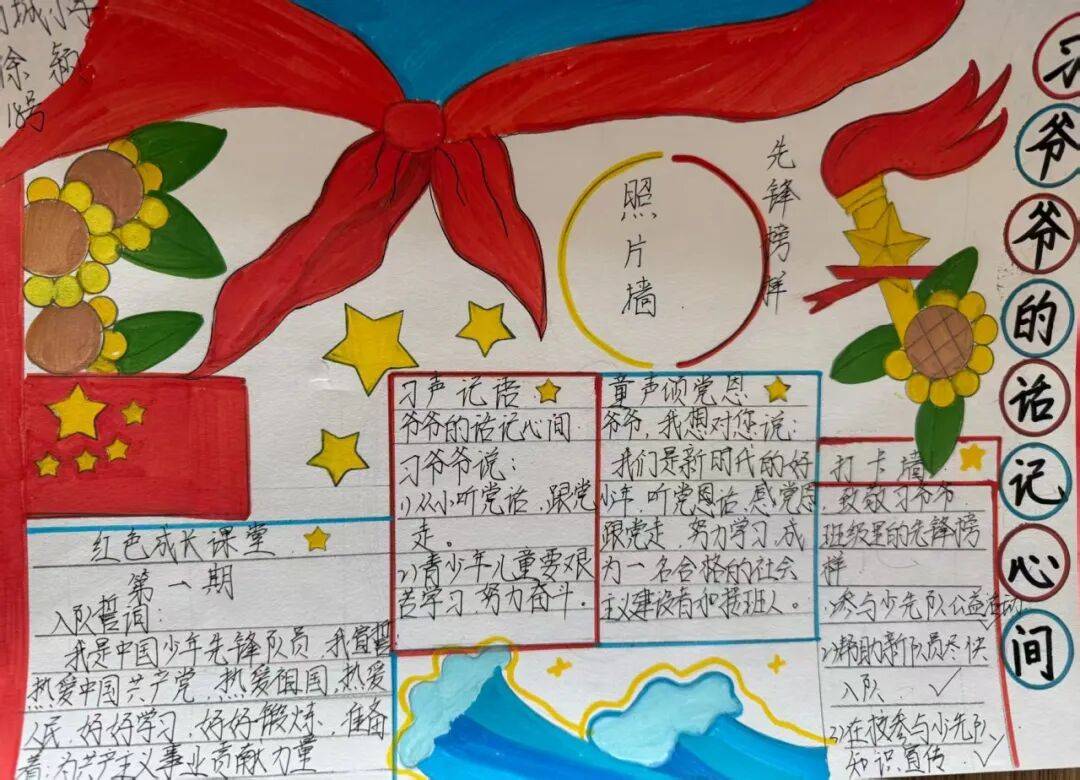 徐颖
18号
习爷爷的话记心间
照片墙
先锋榜样
红色成长课堂
第一期
入队誓词:
我是中国少年先锋队员 我宣誓
热爱中国共产党 热爱祖国,热爱
人民,好好学习,好好锻炼,准备
着:为共产主义事业贡献力量
习声记语
爷爷的话记心间
习爷爷说:
1)从小听党话,跟党
走。
2)青少年儿童要艰
苦学习,努力奋斗。
童声颂党恩
爷爷,我想对您说:
我们是新时代的好
少年,听党恩话,感党恩
跟党走,努力学习,成
为一名合格的社会
主义建设者和接班人。
打卡墙
致敬习爷爷
班级里的先锋榜
样
1)参与少先队公益活动✓
2)帮助新队员尽快
入队 ✓
3)在校参与少先队
知识宣传 ✓